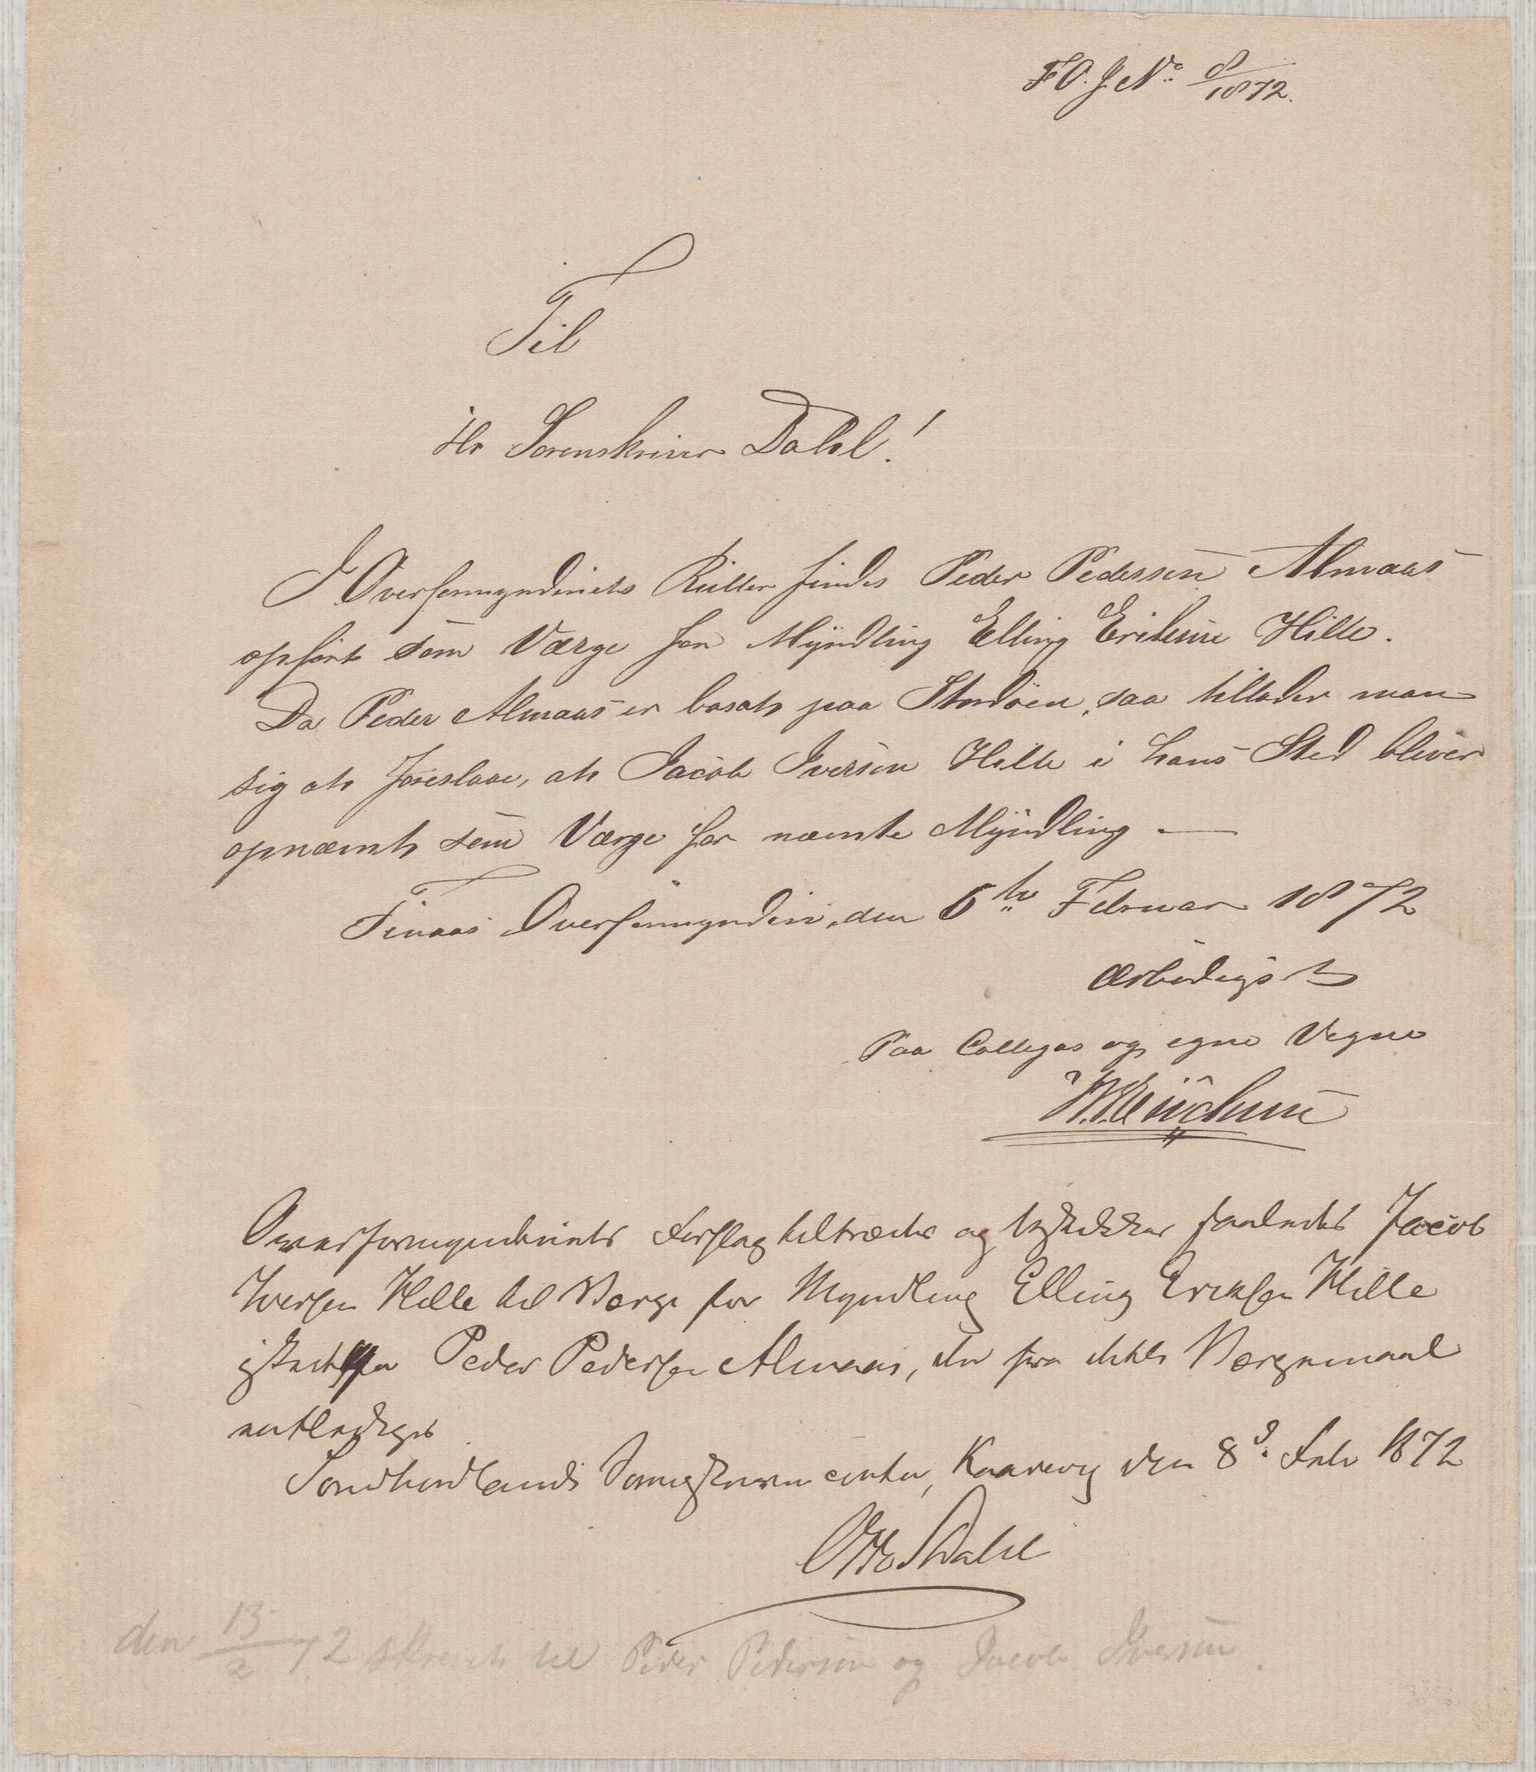 F O. J. No. 8/1872.
Til
Hr Sorenskriver Dahl!
I Overformynderiets Ruller findes Peder Pedersen Almaas
opført som Værge for Myndling Elling Eriksen Hille.
Da Peder Almaas er bosat paa Stordøen, saa tillader man
sig at foreslaae, at Jacob Iversen Hille i hans Sted bliver
opnævnt som Værge for nævnte Myndling —
Finaas Overformynderi, den 6te Februar 1872
Ærbødigst
Paa Collegas og egne Vegne
Overformynderiets Forslag tiltrædes og beskikkes saaledes Jacob
Iversen Hille til Værge for Myndling Elling Eriksen Hille
istedetfor Peder Pedersen Almaas, der fra dette Værgemaal
entlediges
Søndhordlands Sorenskrivercontor, Kaarevig den 8d. Feb 1872
Otto Dahl
den 13/2 72 skrevet til Peder Pedersen og Jacob Iversen.